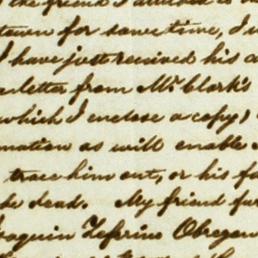 the friend I alluded to
town for some time, I
I have just received his
letter from Mr. Clark's
which I enclose a copy)
mation as will enable
trace him out, or his fa
be dead. My friend fur
oaquin Zeferino Obregon